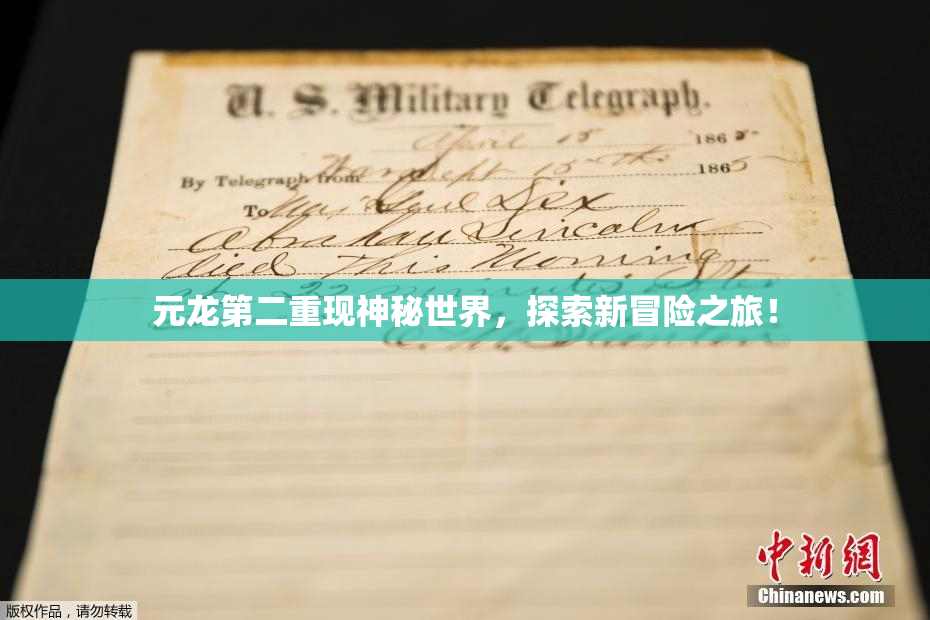 U. S. Military Telegraph.
April 15 1865
By Telegraph from War Dept 15th 1865
To Maj Genl Dix
Abraham Lincoln
died This Morning
at 22 minutes after
元龙第二重现神秘世界，探索新冒险之旅！
E. M. Stanton
中新网
Chinanews.com
版权作品，请勿转载